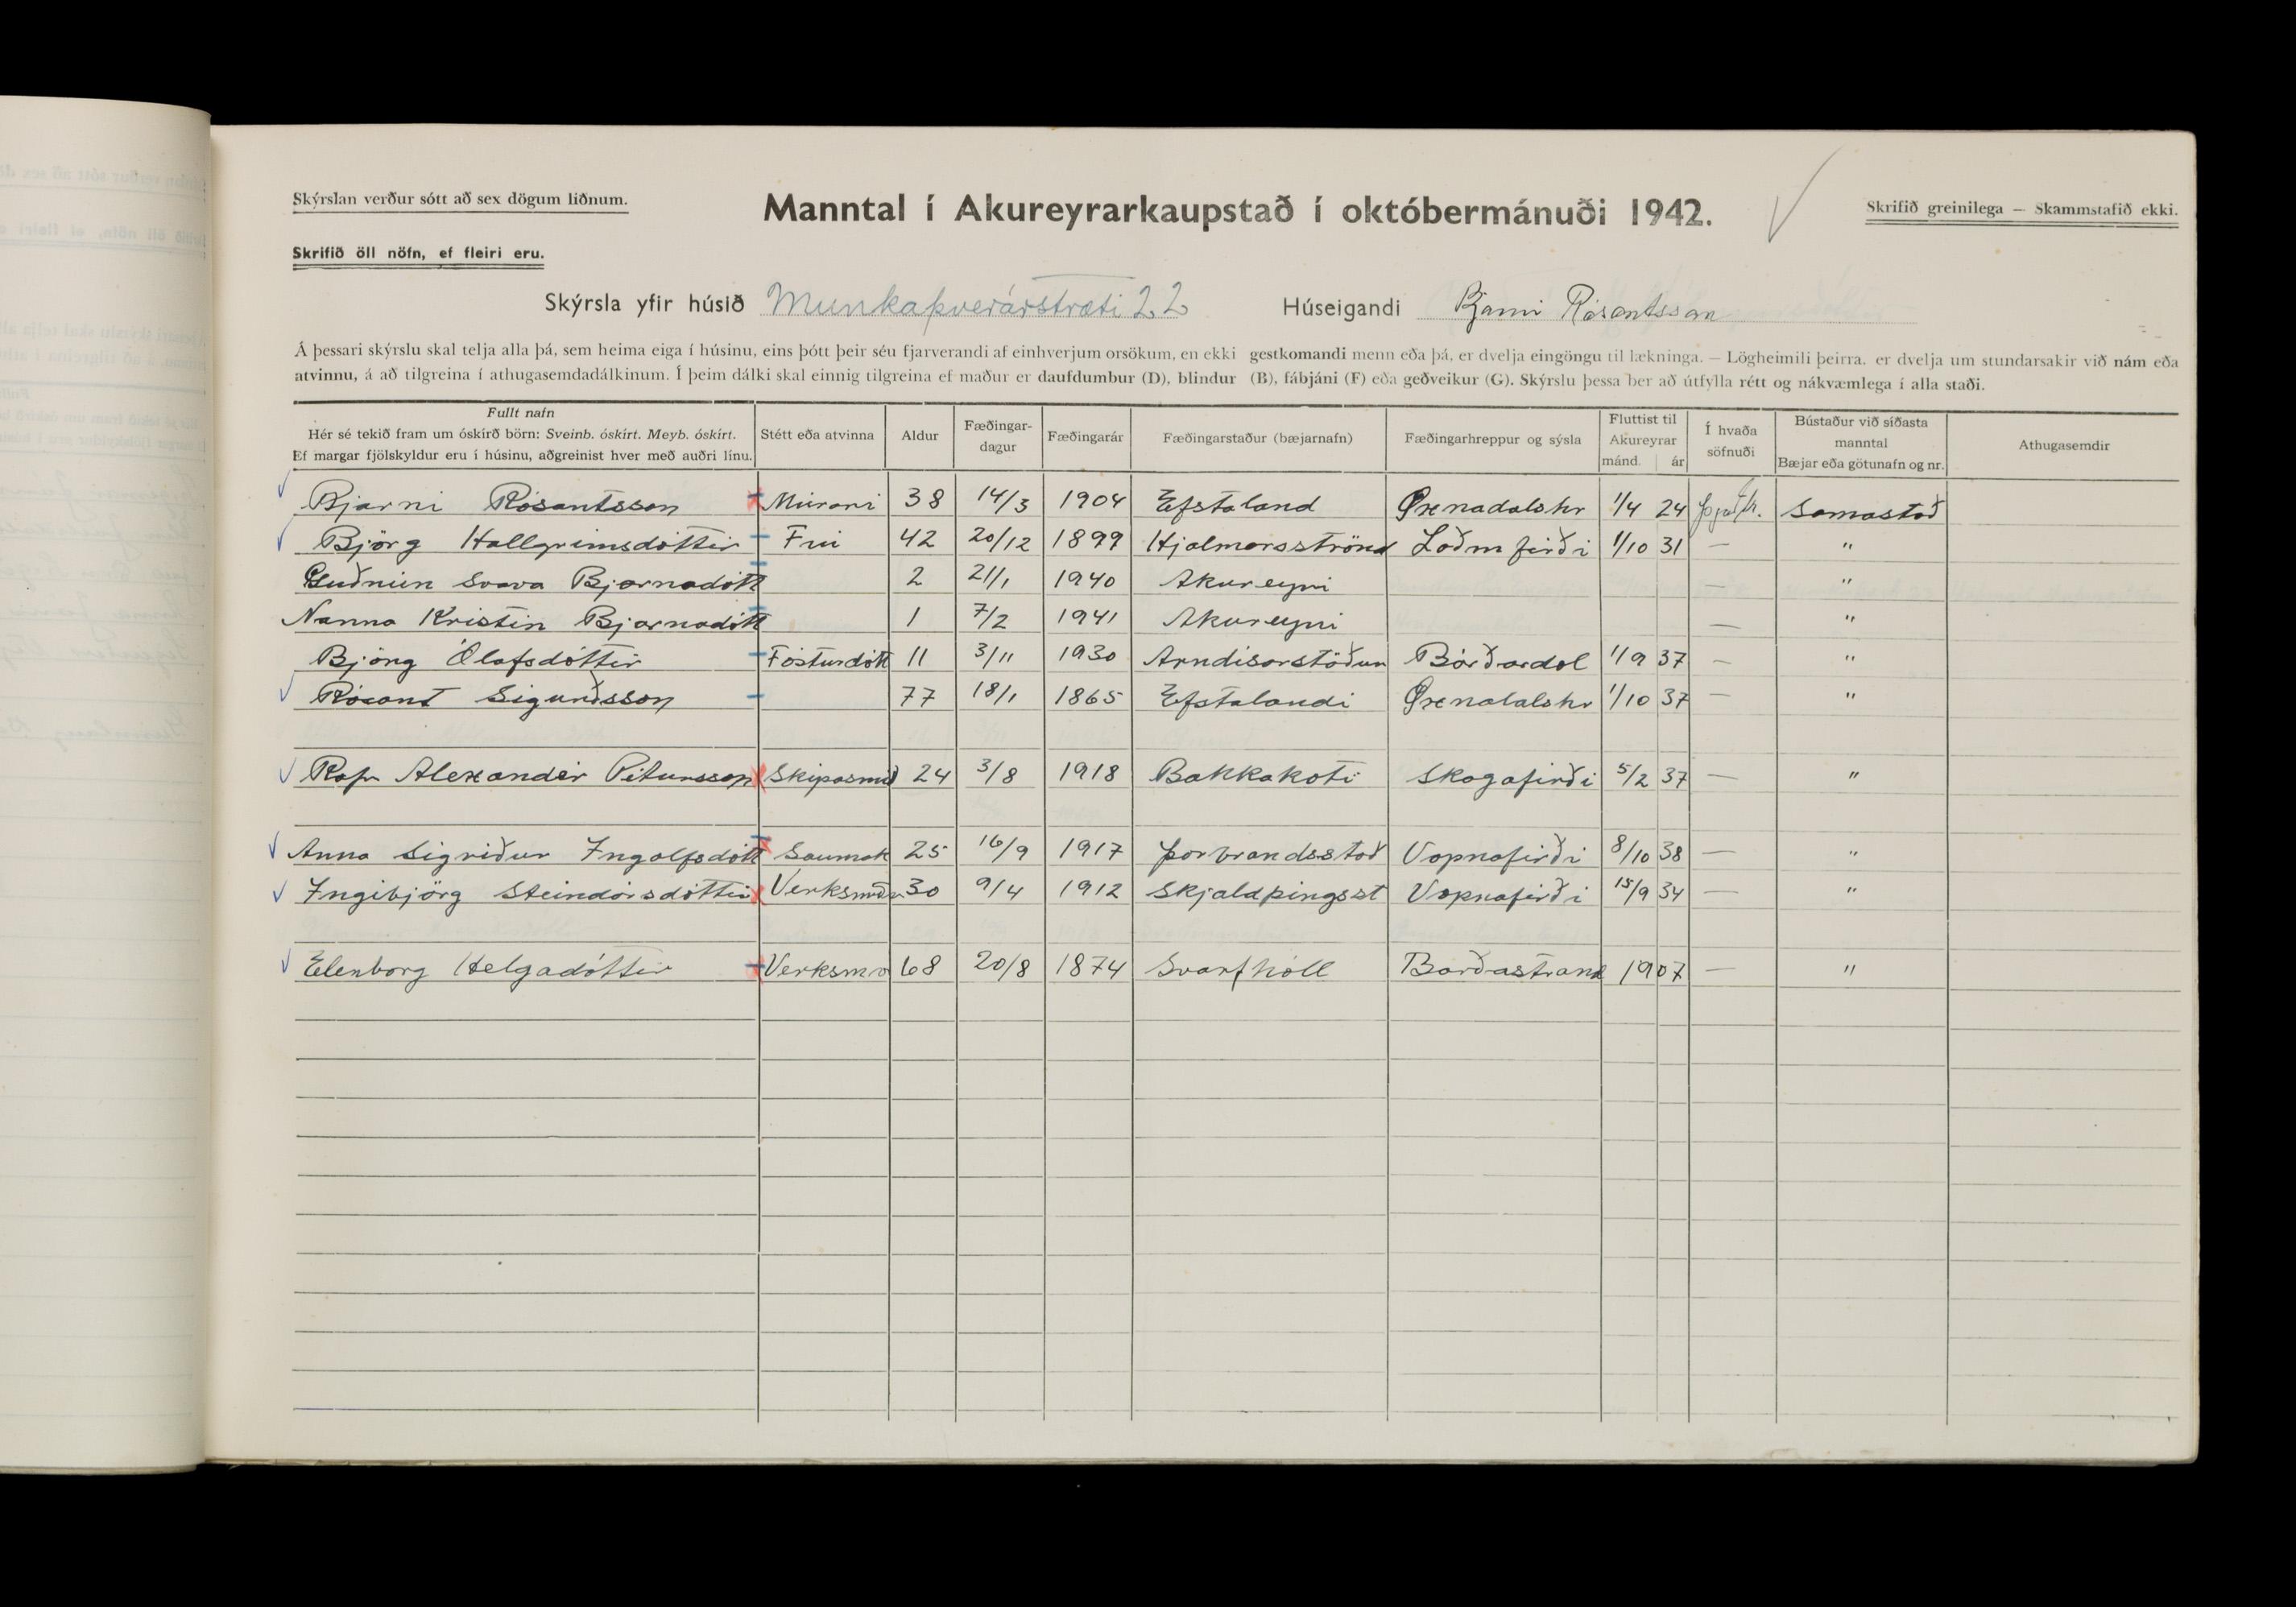 Skýrslan verður sótt að sex dögum liðnum.
Manntal í Akureyrarkaupstað í októbermánuði 1942.
Skrifið greinilega — Skammstafið ekki.
Skrifið öll nöfn, ef fleiri eru.
Skýrsla yfir húsið Munkaþverárstræti 22 Húseigandi Bjarni Rósantsson
Á þessari skýrslu skal telja alla þá, sem heima eiga í húsinu, eins þótt þeir séu fjarverandi af einhverjum orsökum, en ekki gestkomandi menn eða þá, er dvelja eingöngu til lækninga. — Lögheimili þeirra. er dvelja um stundarsakir við nám eða
atvinnu, á að tilgreina í athugasemdadálkinum. Í þeim dálki skal einnig tilgreina ef maður er daufdumbur (D), blindur (B), fábjáni (F) eða geðveikur (G). Skýrslu þessa ber að útfylla rétt og nákvæmlega í alla staði.
Fullt nafn
Hér sé tekið fram um óskírð börn: Sveinb. óskírt. Meyb. óskírt.
Ef margar fjölskyldur eru í húsinu, aðgreinist hver með auðri línu.
Stétt eða atvinna
Aldur
Fæðingar-
dagur
Fæðingarár
Fæðingarstaður (bæjarnafn)
Fæðingarhreppur og sýsla
Fluttist til
Akureyrar
mánd. ár
Í hvaða
söfnuði
Bústaður við síðasta
manntal
Bæjar eða götunafn og nr.
Athugasemdir
Bjarni Rósantsson Múrari 38 14/3 1904 Efstaland Öxnadalshr 1/4 24 Samastað
Björg Hallgrímsdóttir Frú 42 20/12 1899 Hjalmarsströnd Loðmfirði 1/10 31 — "
Guðrún Svava Bjarnadótt 2 21/1 1940 Akureyri — "
Nanna Kristín Bjarnadótt 1 7/2 1941 Akureyri — "
Björg Ólafsdóttir Fósturdótt 11 3/11 1930 Arndísarstöðum Bárðardal 1/9 37 — "
Rósant Sigurðsson 77 18/1 1865 Efstalandi Öxnadalshr 1/10 37 — "
Rafn Alexander Pétursson Skipasmið 24 3/8 1918 Bakkakoti Skagafirði 5/2 37 — "
Anna Sigríður Ingolfsdótt Saumak 25 16/9 1917 Þorbrandsstað Vopnafirði 8/10 38 — "
Ingibjörg Steindórsdóttir 30 9/4 1912 Skjaldþingsst Vopnafirði 15/9 34 — "
Elenborg Helgadóttir 68 20/8 1874 Svarfhóll Barðastrand 1907 — "